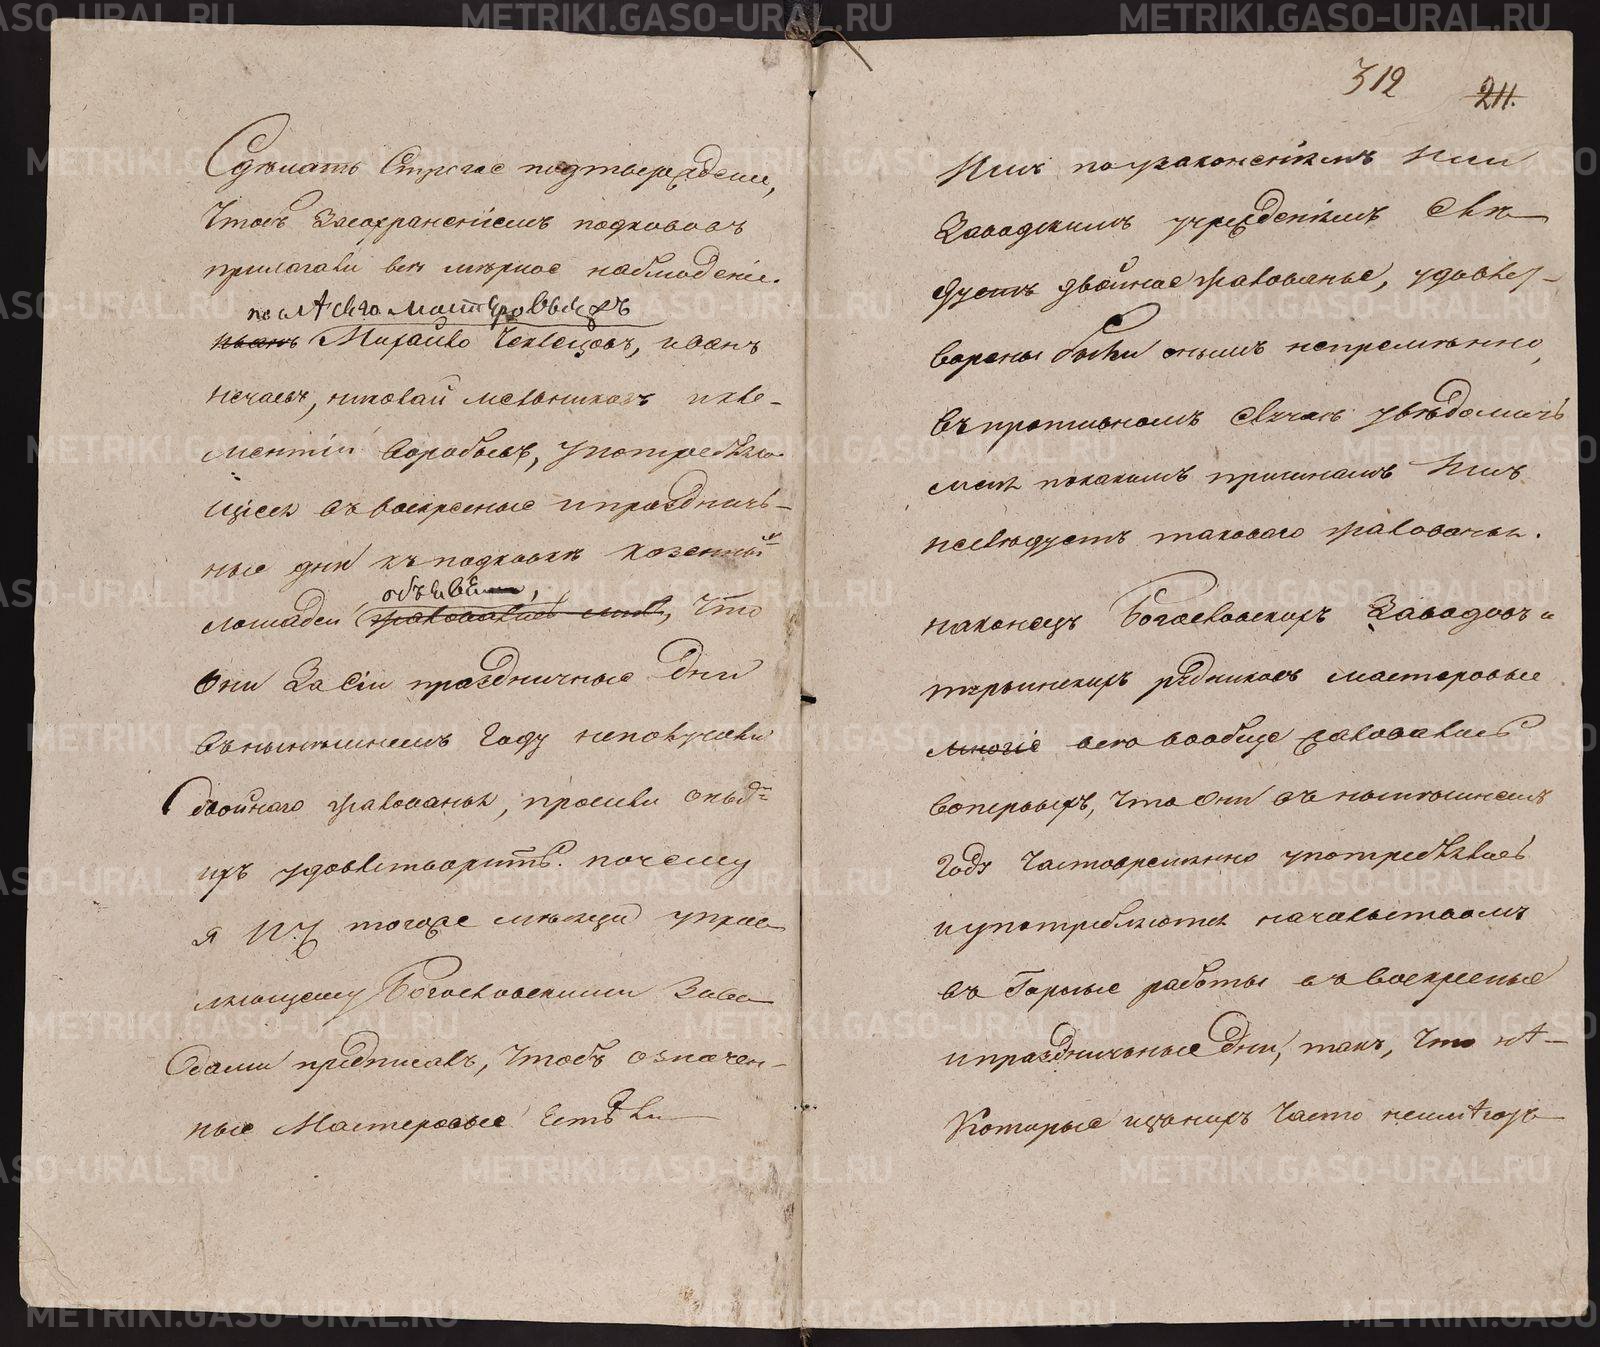 Сдѣлать Строгое подтвержденіе,
Чтобъ Засохраненіемъ подковокъ
прилагали всѣ мѣрное наблюденіе.
послѣ сего мастеровыхъ
Михайло Чевецовъ, иванъ
нечаевъ, николай мельниковъ икле-
ментій Воробьевъ, употребляю
щіеся въ воскресные ипразднич-
ные дни къ подковкѣ казенныхъ
лошадей жаловались мнѣ, что
объявили,
Они За Сіи праздничные Дни
Въ нынѣшнемъ Году неполучали
двойнаго жалованья, просили онымъ
ихъ удовлетворить. почему
я
тогоже мѣсяца управ
ляющему Богословскими Заво
дами предписалъ, чтобъ означен-
ные Мастеровые Естьли
312
211.
Имъ поузаконеніямъ Или
Заводскимъ учрежденіямъ Слѣ
дуетъ двойное жалованье, удовлет-
ворены были онымъ непремѣнно,
Въпротивномъ Случаѣ увѣдомить
меня покакимъ причинамъ Имъ
неслѣдуетъ таковаго жалованья.
наконецъ Богословскихъ Заводовъ и
турьинскихъ рудниковъ мастеровые
многіе всѣ вообще жаловались
Вопервыхъ, Что Они въ нынѣшнемъ
Году Частовременно употреблялись
и употребляются начальствомъ
въ Горные работы въ Воскресные
ипраздничные Дни, такъ, Что нѣ-
Которые изънихъ Часто неимѣютъ
METRIKI.GASO-URAL.RU